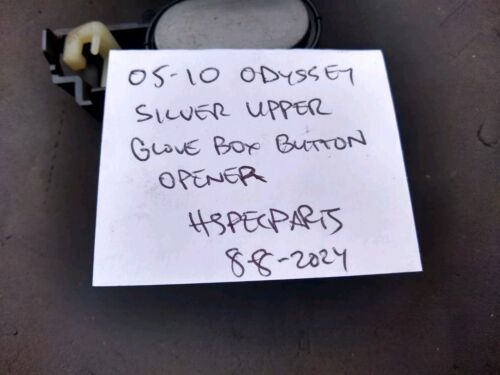 05-10 ODYSSEY
SILVER UPPER
GLOVE BOX BUTTON
OPENER
HSPECPARTS
8-8-2024